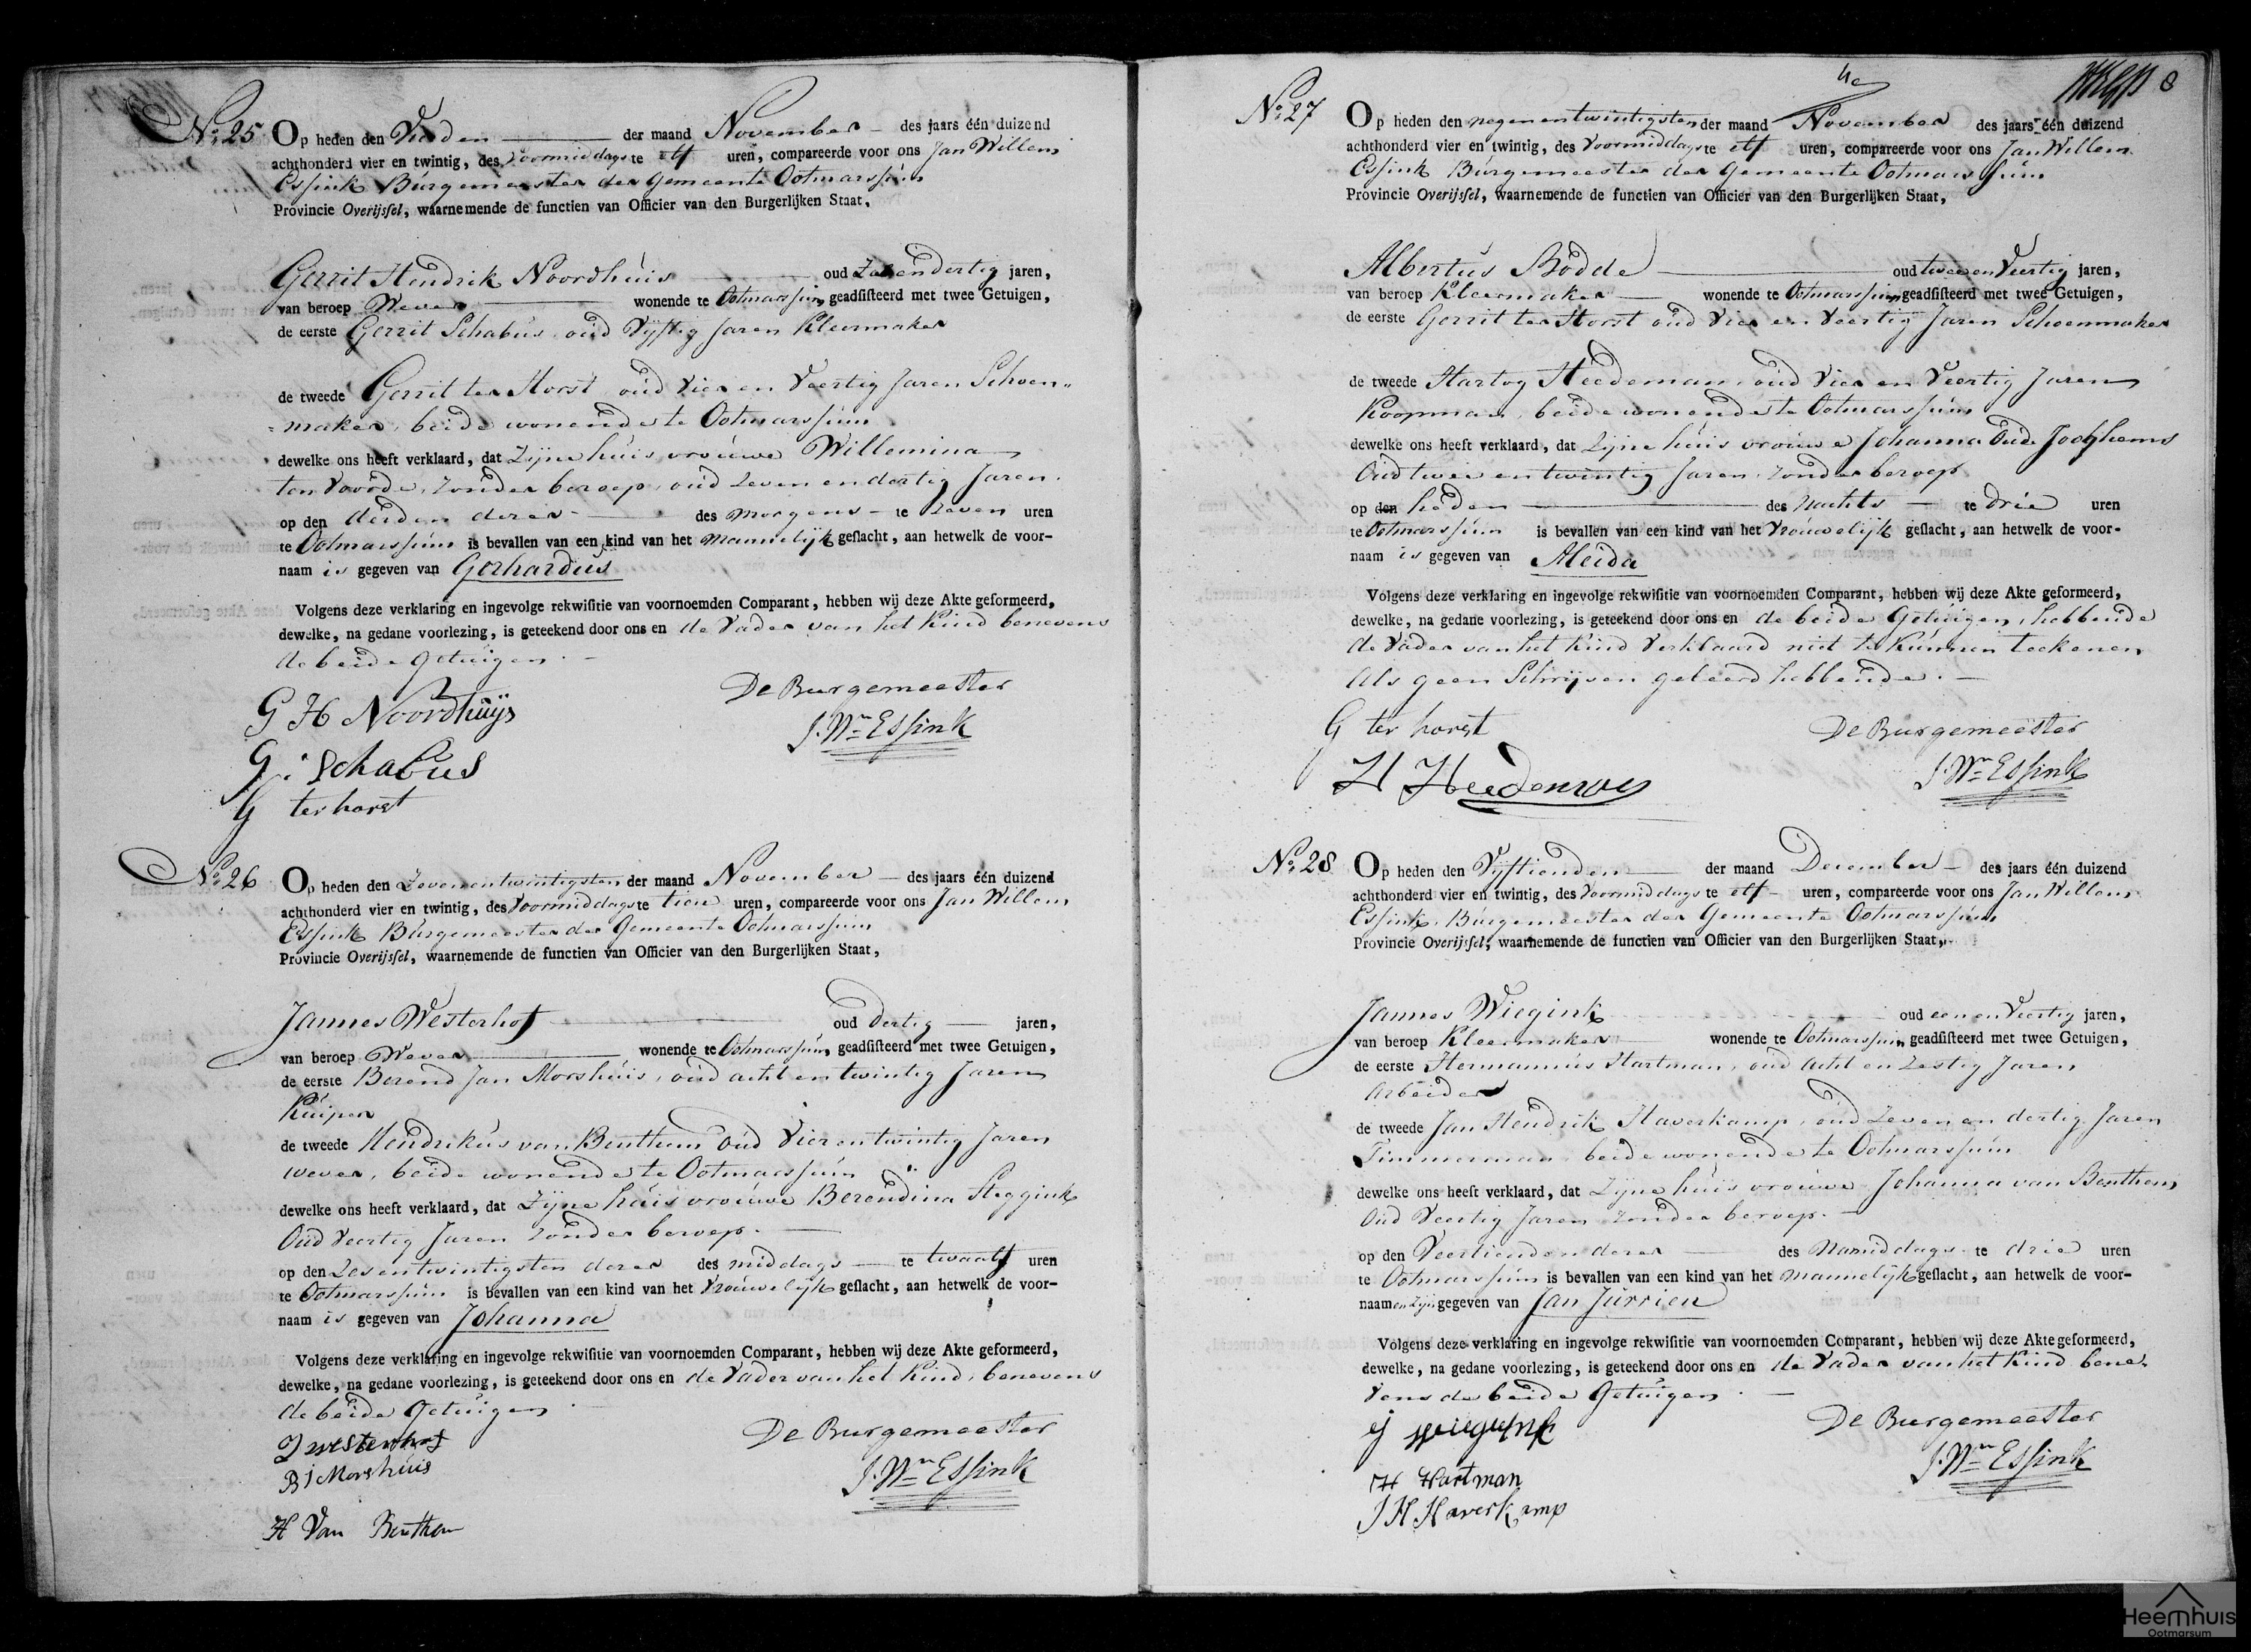 No. 25 Op heden den Vierden der maand November des jaars één duizend
achthonderd vier en twintig, des voormiddags te elf uren, compareerde voor ons Jan Willem
Essink Burgemeester der Gemeente Ootmarssum
Provincie Overijssel, waarnemende de functien van Officier van den Burgerlijken Staat,
Gerrit Hendrik Noordhuis oud dertig jaren,
van beroep Wever wonende te Ootmarssum geadsisteerd met twee Getuigen,
de eerste Gerrit Schabus oud Vijftig Jaren Kleermaker
de tweede Gerrit ter Horst oud Vier en Veertig Jaren Schoen=
=maker, beide wonende te Ootmarssum
dewelke ons heeft verklaard, dat Zijne huisvrouwe Willemina
ten Voorde, zonder beroep, oud Zeven en dertig Jaren.
op den derden derer des morgens te Zeven uren
te Ootmarssum is bevallen van een kind van het mannelijk geslacht, aan hetwelk de voor-
naam is gegeven van Gerhardus
Volgens deze verklaring en ingevolge rekwisitie van voornoemden Comparant, hebben wij deze Akte geformeerd,
dewelke, na gedane voorlezing, is geteekend door ons en de Vader van het Kind benevens
de beide Getuigen.
G H Noordhuijs
De Burgemeester
J. Wm Essink
G. Schabus
G ter horst
No. 26 Op heden den Zevenentwintigsten der maand November des jaars één duizend
achthonderd vier en twintig, des Voormiddags te tien uren, compareerde voor ons Jan Willem
Essink Burgemeester der Gemeente Ootmarssum
Provincie Overijssel, waarnemende de functien van Officier van den Burgerlijken Staat,
Jannes Westerhof oud dertig jaren,
van beroep Wever wonende te Ootmarssum geadsisteerd met twee Getuigen,
de eerste Berend Jan Morshuis, oud acht en twintig Jaren
Kuiper
de tweede Hendrikus van Benthem oud Vier en twintig Jaren
wever, beide wonende te Ootmarssum
dewelke ons heeft verklaard, dat Zijne huisvrouwe Berendina Steggink
Oud Veertig Jaren Zonder beroep.
op den Zesentwintigsten derer des middags te twaalf uren
te Ootmarssum is bevallen van een kind van het Vrouwelijk geslacht, aan hetwelk de voor-
naam is gegeven van Johanna
Volgens deze verklaring en ingevolge rekwisitie van voornoemden Comparant, hebben wij deze Akte geformeerd,
dewelke, na gedane voorlezing, is geteekend door ons en de Vader van het Kind, benevens
de beide Getuigen
J westerhof
De Burgemeester
B J Morshuis
J. Wm Essink
H Van Benthem
8
No. 27 Op heden den negenentwintigsten der maand November des jaars één duizend
achthonderd vier en twintig, des Voormiddags te elf uren, compareerde voor ons Jan Willem
Essink Burgemeester der Gemeente Ootmarssum
Provincie Overijssel, waarnemende de functien van Officier van den Burgerlijken Staat,
Albertus Bödde oud twee en Veertig jaren,
van beroep Kleermaker wonende te Ootmarssum geadsisteerd met twee Getuigen,
de eerste Gerrit ter Horst oud Vier en Veertig Jaren Schoenmaker
de tweede Hartog Heedeman, oud Vier en Veertig Jaren
Koopman, beide wonende te Ootmarssum
dewelke ons heeft verklaard, dat Zijne huisvrouwe Johanna Oude Jochhems
Oud twee en twintig Jaren, zonder beroep
op den heden des Nachts te drie uren
te Ootmarssum is bevallen van een kind van het Vrouwelijk geslacht, aan hetwelk de voor-
naam is gegeven van Aleida
Volgens deze verklaring en ingevolge rekwisitie van voornoemden Comparant, hebben wij deze Akte geformeerd,
dewelke, na gedane voorlezing, is geteekend door ons en de beide Getuigen, hebbende
de Vader van het Kind Verklaard niet te Kunnen teekenen
Als geen Schrijven geleerd hebbende.
G ter horst
De Burgemeester
H Heedeman
J. Wm Essink
No. 28 Op heden den Vijftienden der maand December des jaars één duizend
achthonderd vier en twintig, des Voormiddags te elf uren, compareerde voor ons Jan Willem
Essink, Burgemeester der Gemeente Ootmarssum
Provincie Overijssel, waarnemende de functien van Officier van den Burgerlijken Staat,
Jannes Wiegink oud een en Veertig jaren,
van beroep Kleermaker wonende te Ootmarssum geadsisteerd met twee Getuigen,
de eerste Hermannus Hartman, oud Acht en Zestig Jaren
Arbeider
de tweede Jan Hendrik Haverkamp, oud Zeven en dertig Jaren
Timmerman, beide wonende te Ootmarssum
dewelke ons heeft verklaard, dat Zijne huisvrouwe Johanna van Benthem
Oud Veertig Jaren Zonder beroep.
op den Veertienden derer des Namiddags te drie uren
te Ootmarssum is bevallen van een kind van het mannelijk geslacht, aan hetwelk de voor-
naamen zijn gegeven van Jan Jurrien
Volgens deze verklaring en ingevolge rekwisitie van voornoemden Comparant, hebben wij deze Akte geformeerd,
dewelke, na gedane voorlezing, is geteekend door ons en de Vader van het Kind bene-
vens de beide Getuigen.
De Burgemeester
J. Wm Essink
H Hartman
J H Haverkamp
Heemhuis
Ootmarsum